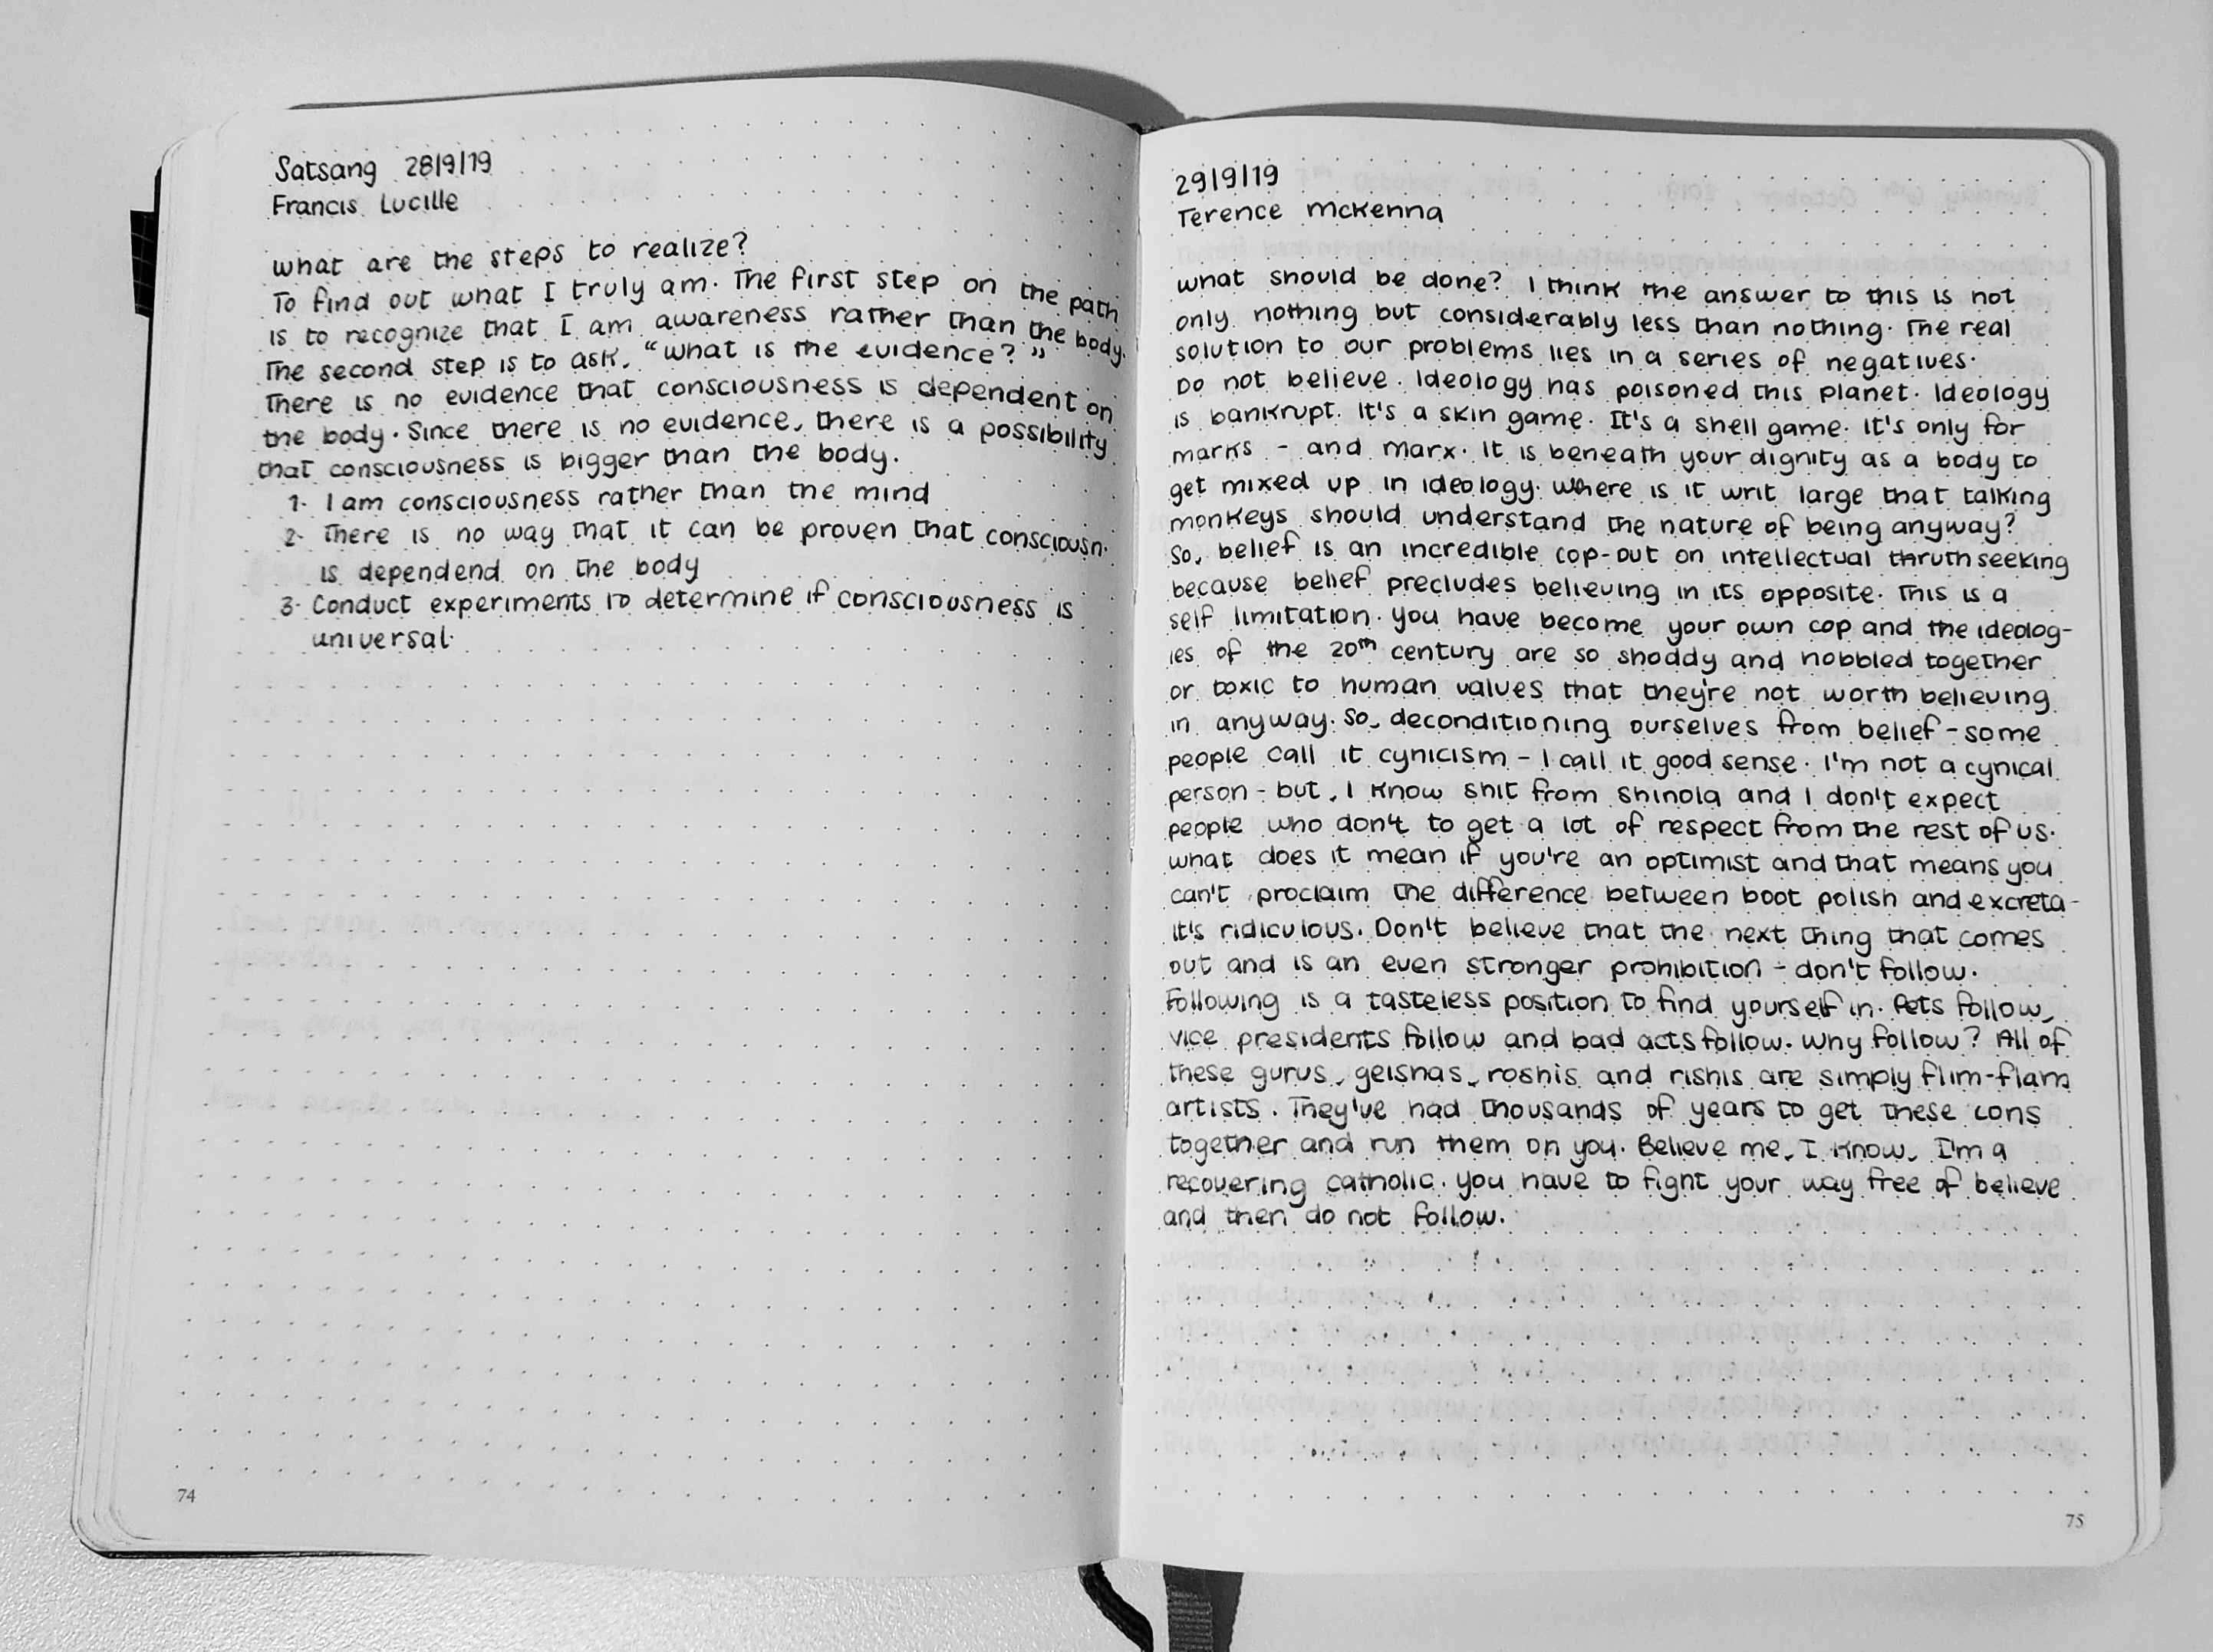 Satsang 28/9/19
Francis Lucille
What are the steps to realize?
To find out what I truly am. The first step on the path
is to recognize that I am awareness rather than the body.
The second step is to ask, "What is the evidence?"
There is no evidence that consciousness is dependent on
the body. Since there is no evidence, there is a possibility
that consciousness is bigger than the body.
1. I am consciousness rather than the mind
2. There is no way that it can be proven that consciousn.
is dependend on the body
3. Conduct experiments to determine if consciousness is
universal.
74
29/9/19
Terence McKenna
What should be done? I think the answer to this is not
only nothing but considerably less than nothing. The real
solution to our problems lies in a series of negatives.
Do not believe. Ideology has poisoned this planet. Ideology
is bankrupt. It's a skin game. It's a shell game. It's only for
marks - and Marx. It is beneath your dignity as a body to
get mixed up in ideology. Where is it writ large that talking
monkeys should understand the nature of being anyway?
So, belief is an incredible cop-out on intellectual thruth seeking
because belief precludes believing in its opposite. This is a
self limitation. You have become your own cop and the ideolog-
ies of the 20th century are so shoddy and hobbled together
or toxic to human values that they're not worth believing
in anyway. So, deconditioning ourselves from belief - some
people call it cynicism - I call it good sense. I'm not a cynical
person - but, I know shit from shinola and I don't expect
people who don't to get a lot of respect from the rest of us.
What does it mean if you're an optimist and that means you
can't proclaim the difference between boot polish and excreta -
it's ridiculous. Don't believe that the next thing that comes
out and is an even stronger prohibition - don't follow.
Following is a tasteless position to find yourself in. Pets follow,
vice presidents follow and bad acts follow. Why follow? All of
these gurus, geishas, roshis and rishis are simply flim-flam
artists. They've had thousands of years to get these cons
together and run them on you. Believe me, I know, I'm a
recovering catholic. You have to fight your way free of believe
and then do not follow.
75